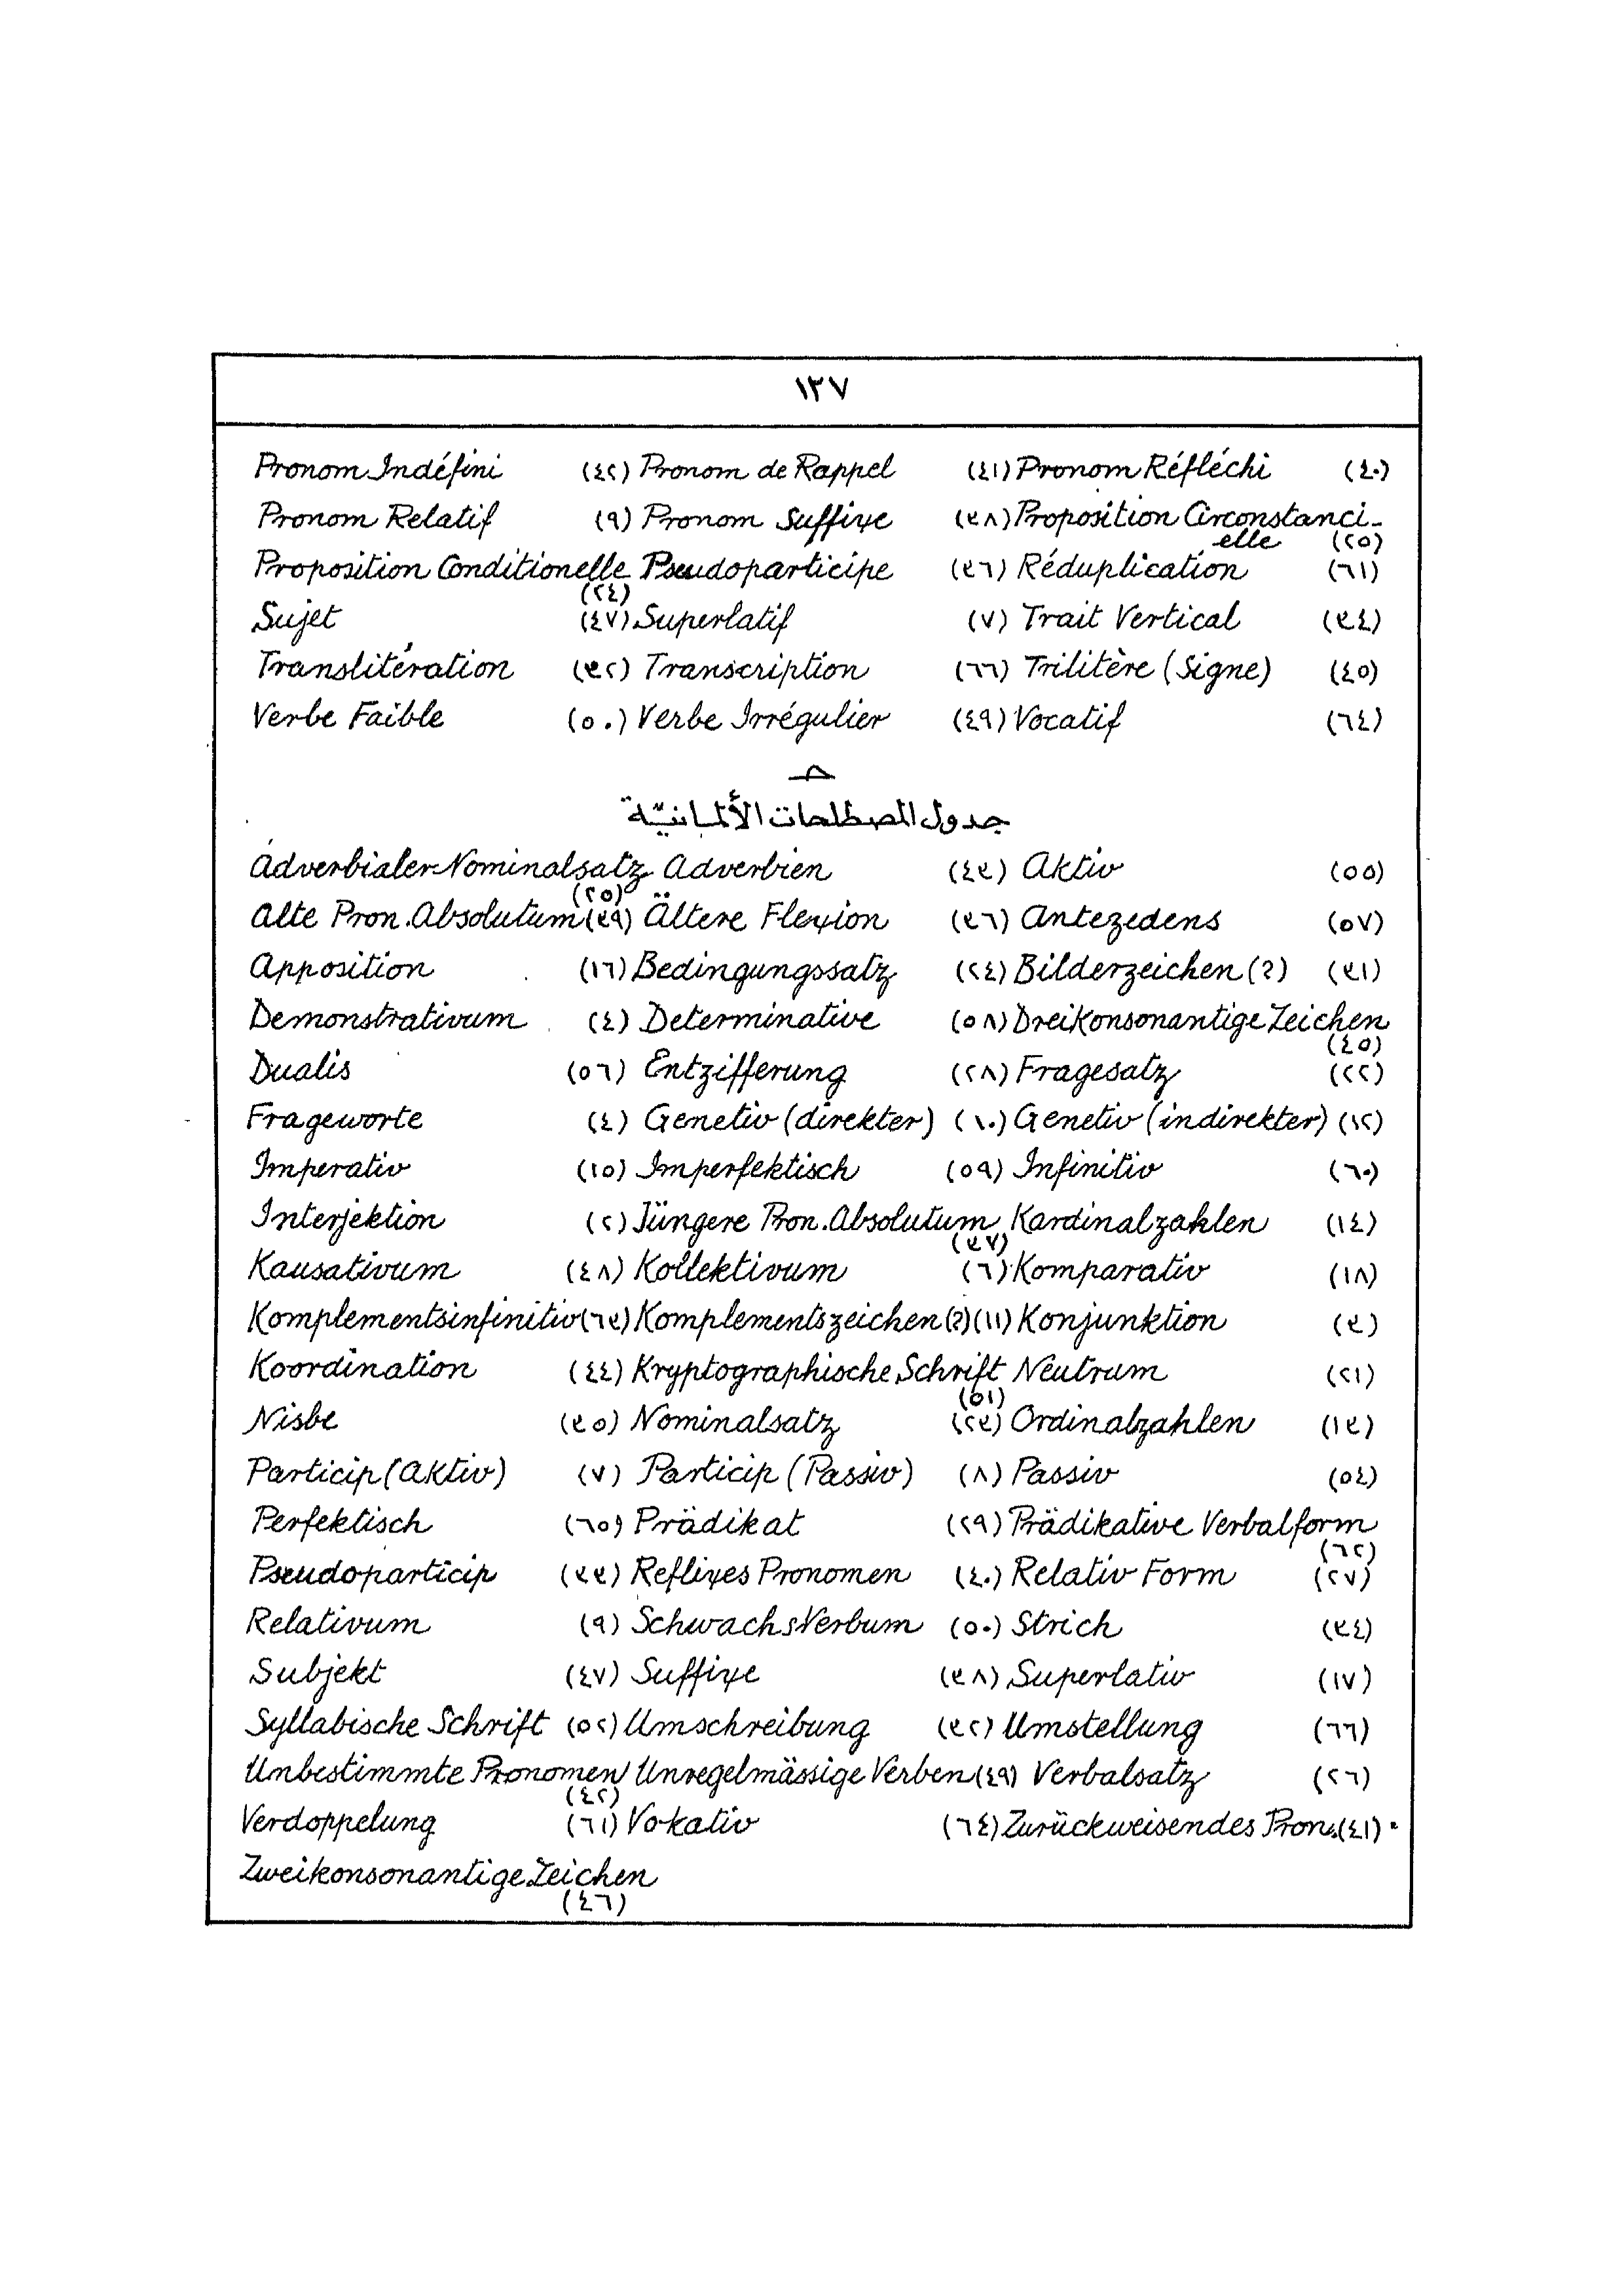 ١٣٧
Pronom Indéfini (٤٢) Pronom de Rappel (٤١) Pronom Réfléchi (٤٠)
Pronom Relatif (٩) Pronom Suffixe (٣٨) Proposition Circonstanci-
elle (٢٥)
Proposition Conditionelle (٢٤) Pseudoparticipe (٣٦) Réduplication (٦١)
Sujet (٤٧) Superlatif (٧) Trait Vertical (٣٤)
Translitération (٣٢) Transcription (٦٦) Trilitère (Signe) (٤٥)
Verbe Faible (٥٠) Verbe Irrégulier (٤٩) Vocatif (٦٤)
جدول المصطلحات الألمانيّة
Adverbialer Nominalsatz (٢٥) Adverbien (٤٣) Aktiv (٥٥)
Alte Pron. Absolutum (٣٩) Ältere Flexion (٣٦) Antezedens (٥٧)
Apposition (١٦) Bedingungssatz (٢٤) Bilderzeichen (?) (٣١)
Demonstrativum (٤) Determinative (٥٨) Dreikonsonantige Zeichen
(٤٥)
Dualis (٥٦) Entzifferung (٢٨) Fragesatz (٢٢)
Frageworte (٤) Genetiv (direkter) (١٠) Genetiv (indirekter) (١٢)
Imperativ (١٥) Imperfektisch (٥٩) Infinitiv (٦٠)
Interjektion (٢) Jüngere Pron. Absolutum (٣٧) Kardinalzahlen (١٤)
Kausativum (٤٨) Kollektivum (٦) Komparativ (١٨)
Komplementsinfinitiv (٦٣) Komplementszeichen (?) (١١) Konjunktion (٣)
Koordination (٤٤) Kryptographische Schrift (٥١) Neutrum (٢١)
Nisbe (٣٥) Nominalsatz (٢٣) Ordinalzahlen (١٣)
Particip (Aktiv) (٧) Particip (Passiv) (٨) Passiv (٥٤)
Perfektisch (٦٥) Prädikat (٢٩) Prädikative Verbalform
(٦٢)
Pseudoparticip (٣٣) Reflixes Pronomen (٤٠) Relativ Form (٢٧)
Relativum (٩) Schwachs Verbum (٥٠) Strich (٣٤)
Subjekt (٤٧) Suffixe (٣٨) Superlativ (١٧)
Syllabische Schrift (٥٢) Umschreibung (٣٢) Umstellung (٦٦)
Unbestimmte Pronomen (٤٢) Unregelmässige Verben (٤٩) Verbalsatz (٢٦)
Verdoppelung (٦١) Vokativ (٦٤) Zurückweisendes Pron. (٤١)
Zweikonsonantige Zeichen
(٤٦)